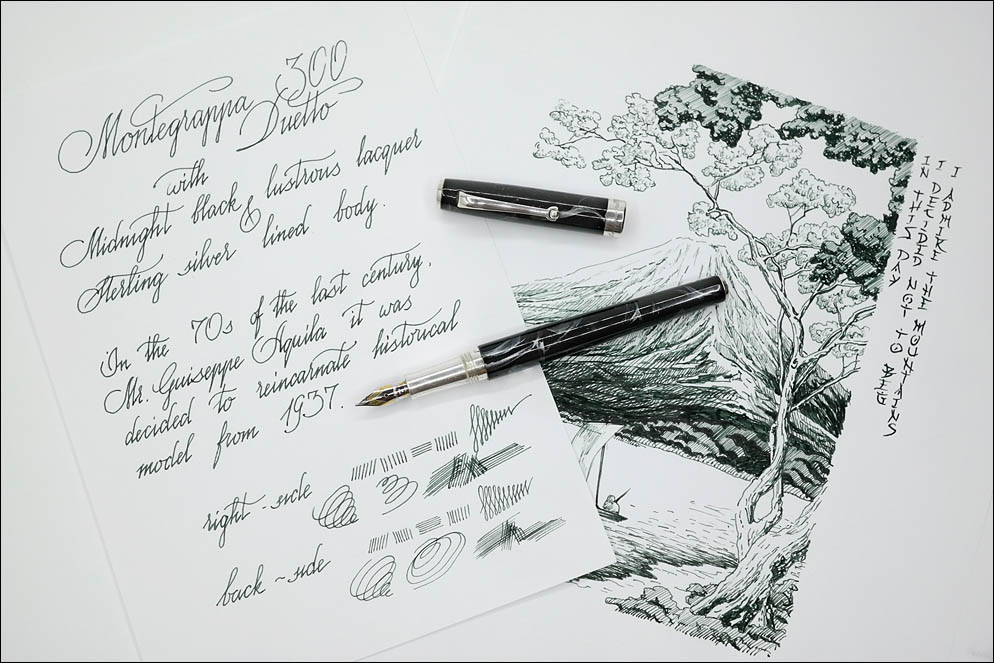 Montegrappa 300
Duetto
with
Midnight black lustrous lacquer
&
Sterling silver lined body.
In the 70s of the last century,
Mr. Guiseppe Aquila it was
decided to reincarnate historical
model from 1937.
right-side
back-side
I ADMIRE THE MOUNTAINS
I DECIDED NOT TO
IN THIS DAY